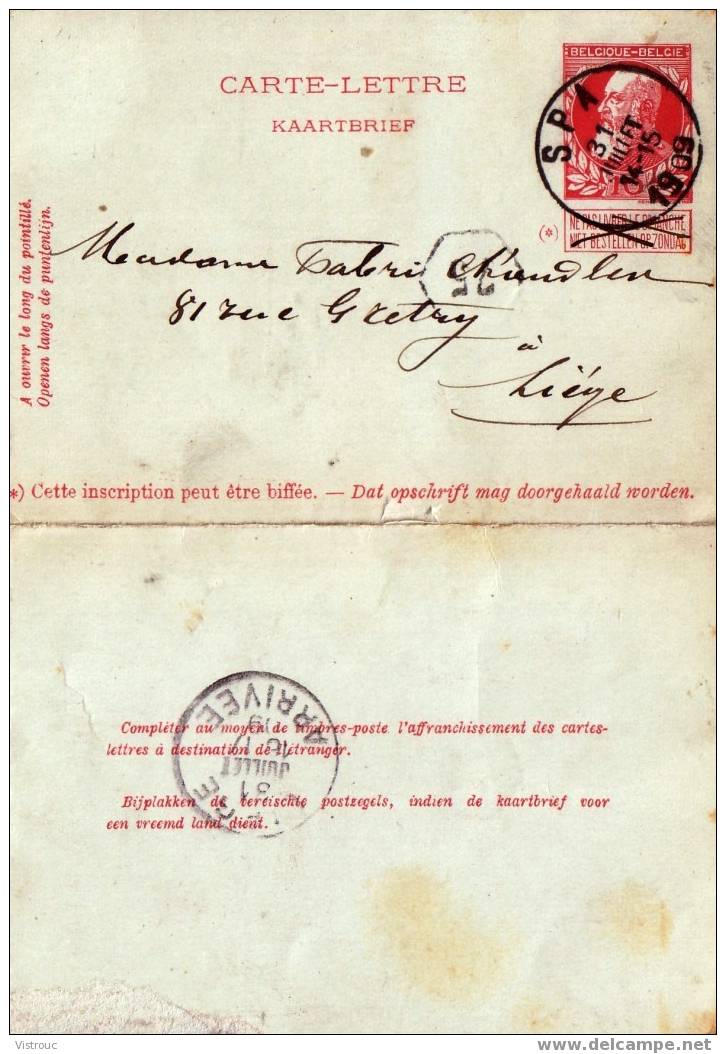 BELGIQUE-BELGIE
CARTE-LETTRE
KAARTBRIEF
SPA
31
JUILLET
14-15
1909
10
NE PAS LIVRER LE DIMANCHE
NIET BESTELLEN OP ZONDAG
(*)
A ouvrir le long du pointillé.
Openen langs de puntenlijn.
Madame Chandler
25
81 rue Gretry
à
Liége
*) Cette inscription peut être biffée. — Dat opschrift mag doorgehaald worden.
ARRIVÉE
JUILLET
31
Compléter au moyen de timbres-poste l'affranchissement des cartes-
lettres à destination de l'étranger.
Bijplakken de vereischte postzegels, indien de kaartbrief voor
een vreemd land dient.
Vistrouc
www.delcampe.net